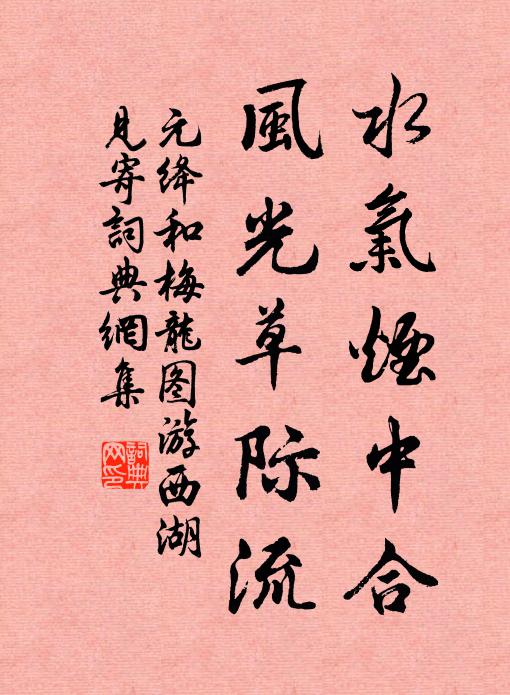 水氣煙中合
風光草际流
元绛和梅龍图游西湖
見寄詞典網集
詞典
网印